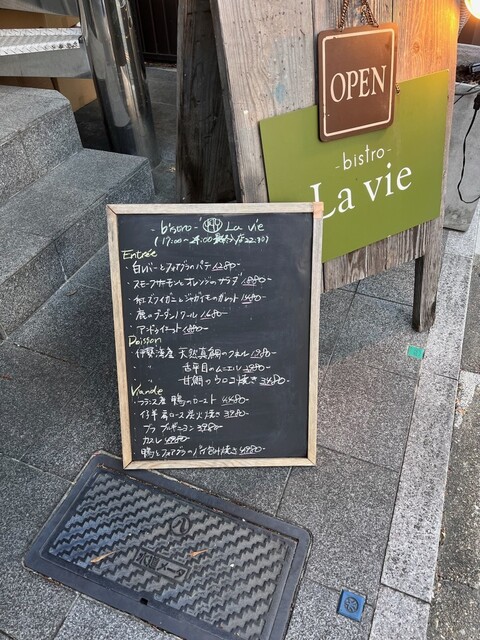 OPEN
-bistro-
La vie
-bistro- La vie
(17:00〜24:00 22:30)
Entrée
・白レバーとフォアグラのパテ 1280-
・スモークサーモンとオレンジのサラダ 1880-
・紅ズワイガニとジャガイモのガレット 1480-
・鹿のブーダンノワール 1680-
・アンドゥイエット 1880-
Poisson
・伊勢湾産 天然真鯛のポワレ 1980-
〃 舌平目のムニエル
〃 甘鯛のウロコ焼き
Viande
・フランス産 鴨のロースト 4480-
仔羊肩ロース炭火焼き 3980-
ブフ ブルギニヨン 3980-
カスレ
鴨とフォアグラのパイ包み焼き 4980-
メータ